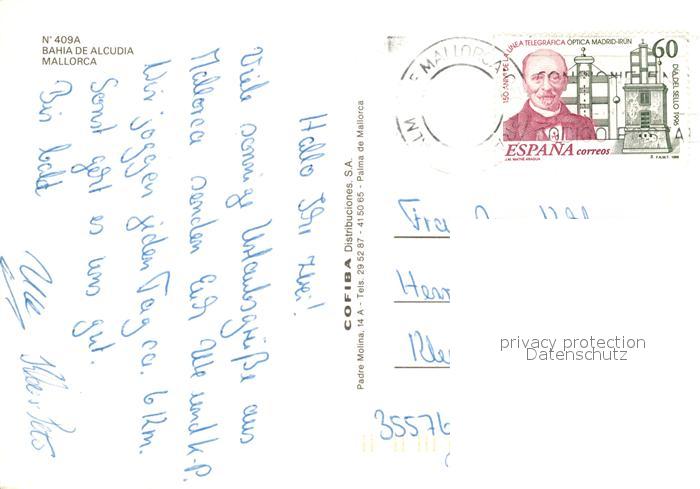 N° 409A
BAHIA DE ALCUDIA
MALLORCA
Hallo Ihr zwei!
Viele sonnige Urlaubsgrüße aus
Mallorca senden Euch Ute und K.-P.
Wir joggen jeden Tag ca. 6 km.
Sonst geht es uns gut.
Bis bald
Ute
COFIBA Distribuciones. S.A.
Padre Molina, 14 A - Tels. 29 52 87 - 41 50 65 - Palma de Mallorca
MALLORCA
150 ANIV. DE LA LINEA TELEGRÁFICA ÓPTICA MADRID-IRÚN
60
DIA DEL SELLO 1996
ESPAÑA correos
J.M. MATHÉ ARAGUA
F.N.M.T. 1996
Herr
35576
privacy protection
Datenschutz